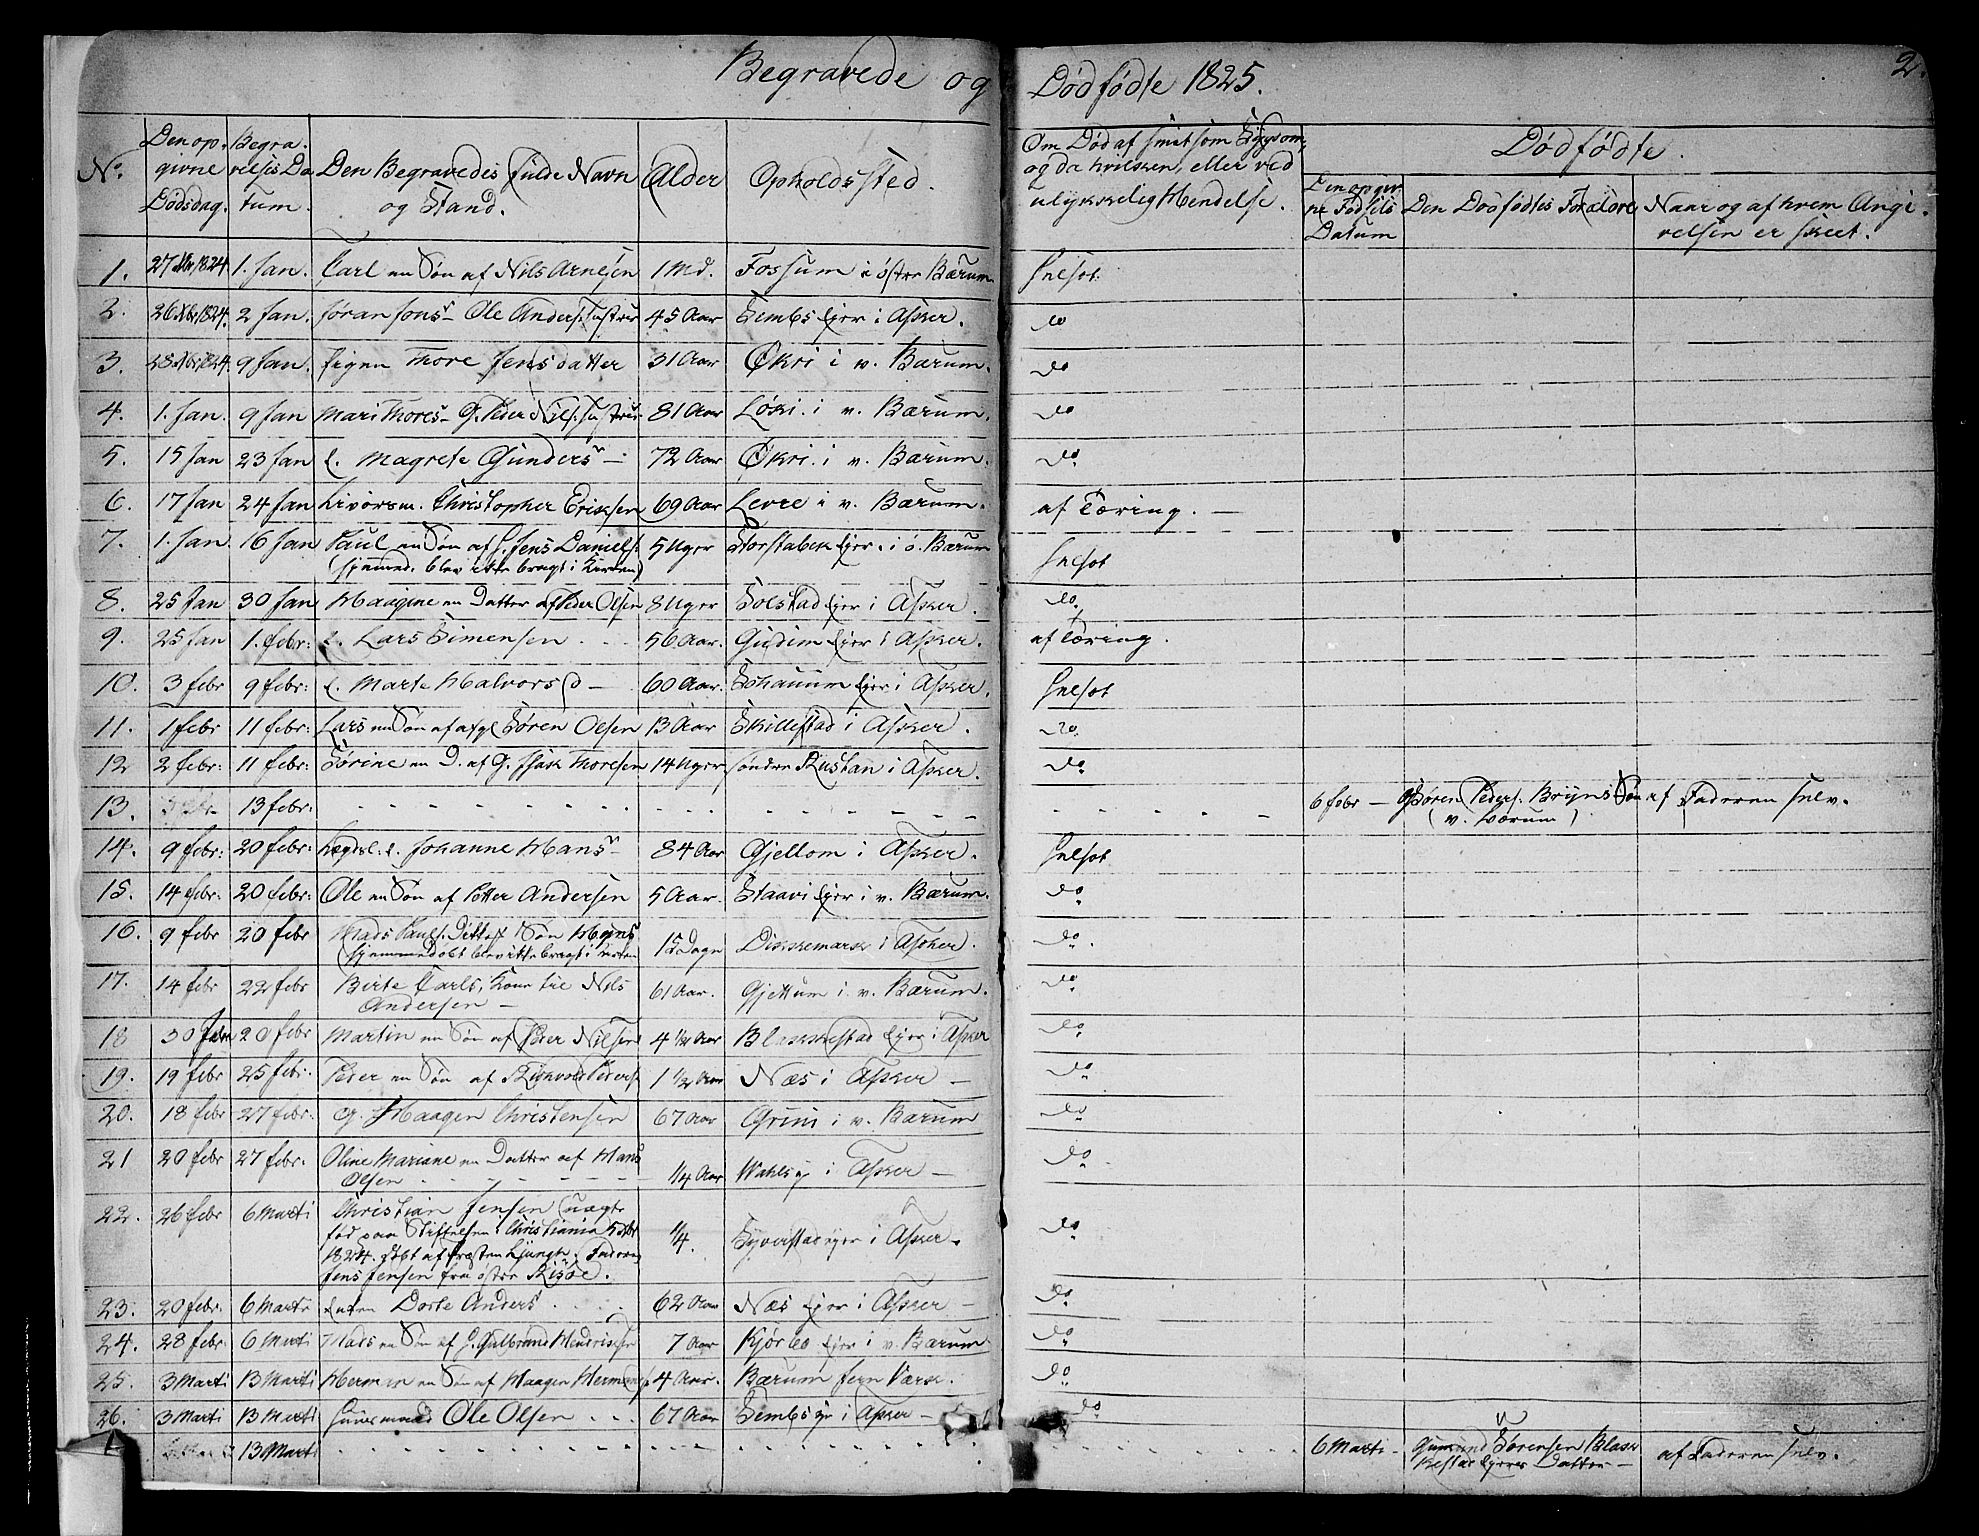 Begravede og Dødfødte 1825. 2.
No. Den opgivne Dødsdag. Begravelses Datum. Den Begravedes fulde Navn og Stand. Alder Opholdssted. Om Død af smitsom Sygdom, og da hvilken, eller ved ulykkelig Hendelse. Dødfødte.
Den opgivne Fødsels Datum Den Dødfødtes Forældre Naar og af hvem Angivelsen er skeet.
1. 27 Xbr 1824 1. Jan. Carl en Søn af Nils Arnesen 1 Md. Fossum i øster Bærum Inlsot
2. 26 Xbr 1824. 2 Jan. Jøran Jons Ole Anders: Hustrue 45 Aar Sembs Ejer i Asker. do
3. 28 Xbr 1824. 9 Jan. Pigen Thore Jensdatter 31 Aar Økri i v. Bærum. do
4. 1. Jan. 9 Jan Mari Thores G. Peder Nils: Hustrue 81 Aar Løki i v. Bærum. do
5. 15 Jan 23 Jan E. Magrete Gunders 72 Aar Økri i v. Bærum. do
6. 17 Jan 24 Jan Livørsm. Christopher Eriksen 69 Aar Levre i v. Bærum. af Tæring.
7. 1. Jan. 16 Jan Paul en Søn af H. Jens Daniels: 5 Uger Storstabek Ejer i ø. Bærum Inlsot
(hjemmed. blev itte bragt i Kirken)
8. 25 Jan 30 Jan Haagine en Datter af Peder Olsen 8 Uger Solstad Ejer i Asker. do
9. 25 Jan 1. febr: E. Lars Simensen 56 Aar. Gudim Ejer i Asker. af Tæring.
10. 3 febr 9 febr: E. Marte Halvorsd 60 Aar. Ejer i Asker. Inlsot
11. 1 febr 11 febr: Lars en Søn af afg. Søren Olsen 13 Aar Skillestad i Asker. do
12 2 febr: 11 febr: Sørine en D. af G. Isak Thoresen 14 Uger sønder Rustan i Asker. do
13. 13 febr: 6 febr G Søren Peders. Bryns Søn af Faderen selv.
(v. Bærum)
14. 9 febr: 20 febr: Lægdsl: E. Johanne Hans 84 Aar Gjellom i Asker. Inlsot
15. 14 febr: 20 febr: Ole en Søn af Petter Andersen 5 Aar. Staavi Ejer i v. Bærum. do
16. 9 febr 20 febr Mads Paul: Dittos Søn Mogns 15 Dage Dikkemark i Asker. do
(hjemmedøbt blev itte bragt i Kirken
17. 14 febr 22 febr Birte Carls, Kone til Nils Andersen 61 Aar. Gjettum i v. Bærum. do
18 30 Jan 20 febr Martin en Søn af Peder Nilsen 4 1/2 Aar Blakkestad Ejer i Asker do
19. 19 febr 25 febr. Peder en Søn af Pederse 1 1/2 Aar Næs i Asker do
20. 18 febr 27 febr. G. Haagen Christensen 67 Aar Grini i v. Bærum do
21 20 febr 27 febr. Oline Mariane en Datter af Hans Olsen 1/4 Aar i Asker do
22. 26 febr 6 Marti Christian Jensen (uægte
fød paa Stiftelsen i Christiania
1824. døbt af Præsten Faderen
Jens Jensen fra øster Risøe. 1/4. Syverstad Ejer i Asker. do
23. 20 febr. 6 Marti Enken Dorte Anders 62 Aar Næs Ejer i Asker do
24. 28 febr. 6 Marti Mads en Søn af G. Gulbrand Hendriksen 7 Aar Kjørbo Ejer i v. Bærum do
25. 3 Marti 13 Marti Herman en Søn af Haagen Hermans 4 Aar. Bærum Jern Værk. do
26. 3 Marti 13 Marti Huusmand Ole Olsen 67 Aar Sembs ejer i Asker do
13 Marti 6 Marti Gumund Sørensen Blakkestad Ejeres Datter af Faderen selv.